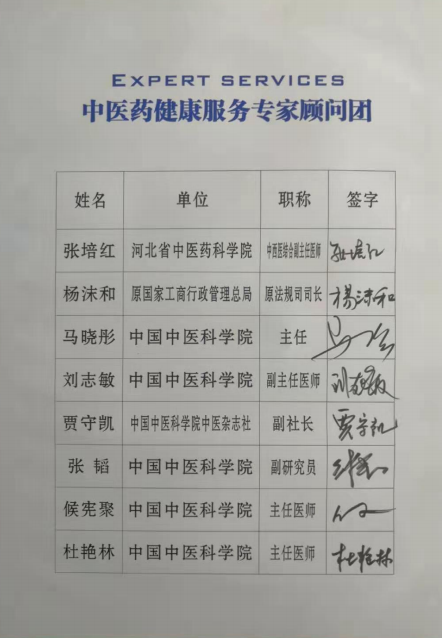 EXPERT SERVICES
中医药健康服务专家顾问团
姓名 单位 职称 签字
张培红 河北省中医药科学院 中西医结合副主任医师 张培红
杨沫和 原国家工商行政管理总局 原法规司司长 杨沫和
马晓彤 中国中医科学院 主任
刘志敏 中国中医科学院 副主任医师 刘志敏
贾守凯 中国中医科学院中医杂志社 副社长 贾守凯
张韬 中国中医科学院 副研究员
候宪聚 中国中医科学院 主任医师
杜艳林 中国中医科学院 主任医师 杜艳林